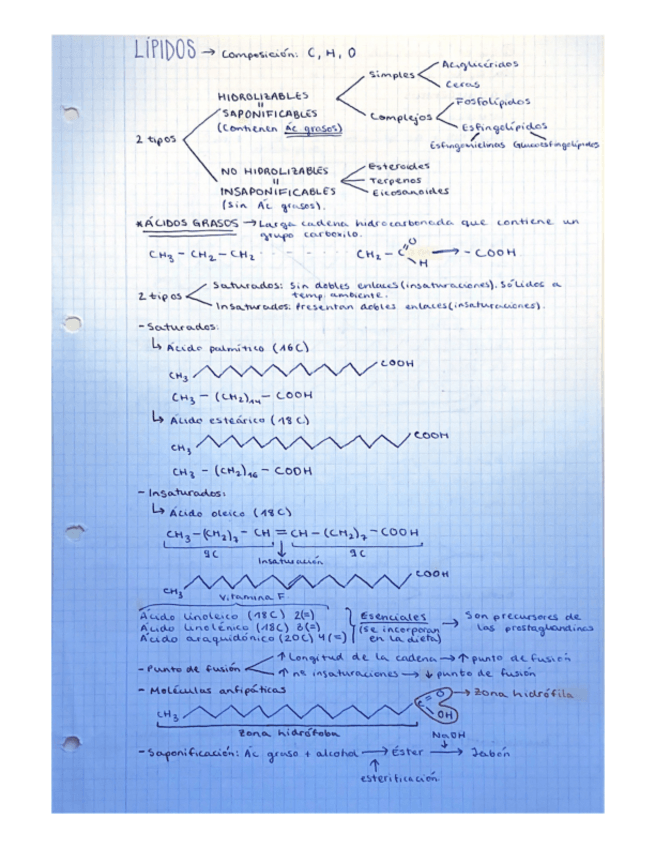 LÍPIDOS → Composición: C, H, O
2 tipos
HIDROLIZABLES
=
SAPONIFICABLES
(Contienen Ác grasos)
Simples
Acilglicéridos
Ceras
Complejos
Fosfolípidos
Esfingolípidos
Esfingomielinas Glucoesfingolípidos
NO HIDROLIZABLES
=
INSAPONIFICABLES
(Sin Ác grasos).
Esteroides
Terpenos
Eicosanoides
*ÁCIDOS GRASOS → Larga cadena hidrocarbonada que contiene un
grupo carboxilo.
CH3 - CH2 - CH2 - - - - - CH2 - C=O H → - COOH
2 tipos
Saturados: Sin dobles enlaces (insaturaciones). Sólidos a
temp. ambiente.
Insaturados: Presentan dobles enlaces (insaturaciones).
- Saturados:
↳ Ácido palmítico (16C)
CH3 COOH
CH3 - (CH2)14 - COOH
↳ Ácido esteárico (18C)
CH3 COOH
CH3 - (CH2)16 - COOH
- Insaturados:
↳ Ácido oleico (18C)
CH3-(CH2)7 - CH = CH - (CH2)7 - COOH
9C 9C
Insaturación
CH3 COOH
Vitamina F
Ácido linoleico (18C) 2(=)
Ácido linolénico (18C) 3(=)
Ácido araquidónico (20C) 4(=)
Esenciales
(Se incorporan
en la dieta)
→ Son precursores de
las prostaglandinas
- Punto de fusión
↑ Longitud de la cadena → ↑ punto de fusión
↑ nº insaturaciones → ↓ punto de fusión
- Moléculas anfipáticas
CH3 C=O OH → Zona hidrófila
Zona hidrófoba
NaOH
- Saponificación: Ác graso + alcohol → Éster → Jabón
↑
esterificación